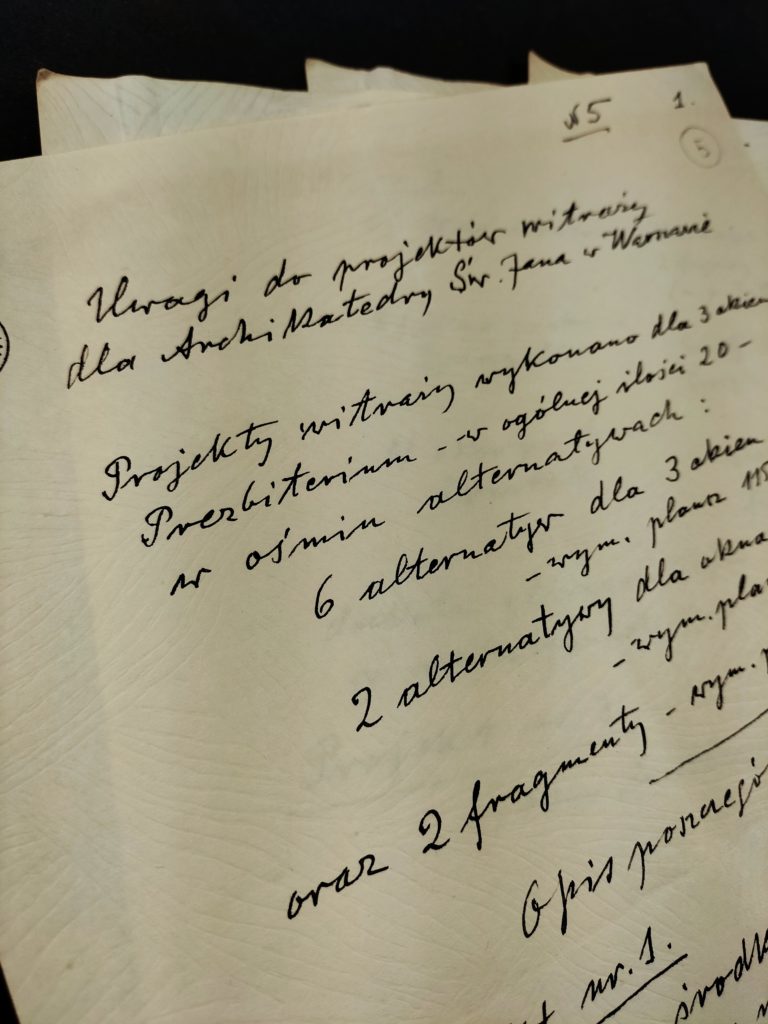 N 5 1.
5
Uwagi do projektów witraży
dla ArchiKatedry Św. Jana w Warszawie
Projekty witraży wykonano dla 3 okien
Prezbiterium - w ogólnej ilości 20 -
w ośmiu alternatywach :
6 alternatyw dla 3 okien
- wym. plansz 115
2 alternatywy dla okna
- wym. pla
oraz 2 fragmenty - wym. p
Opis poszczegó
nr. 1.
środk